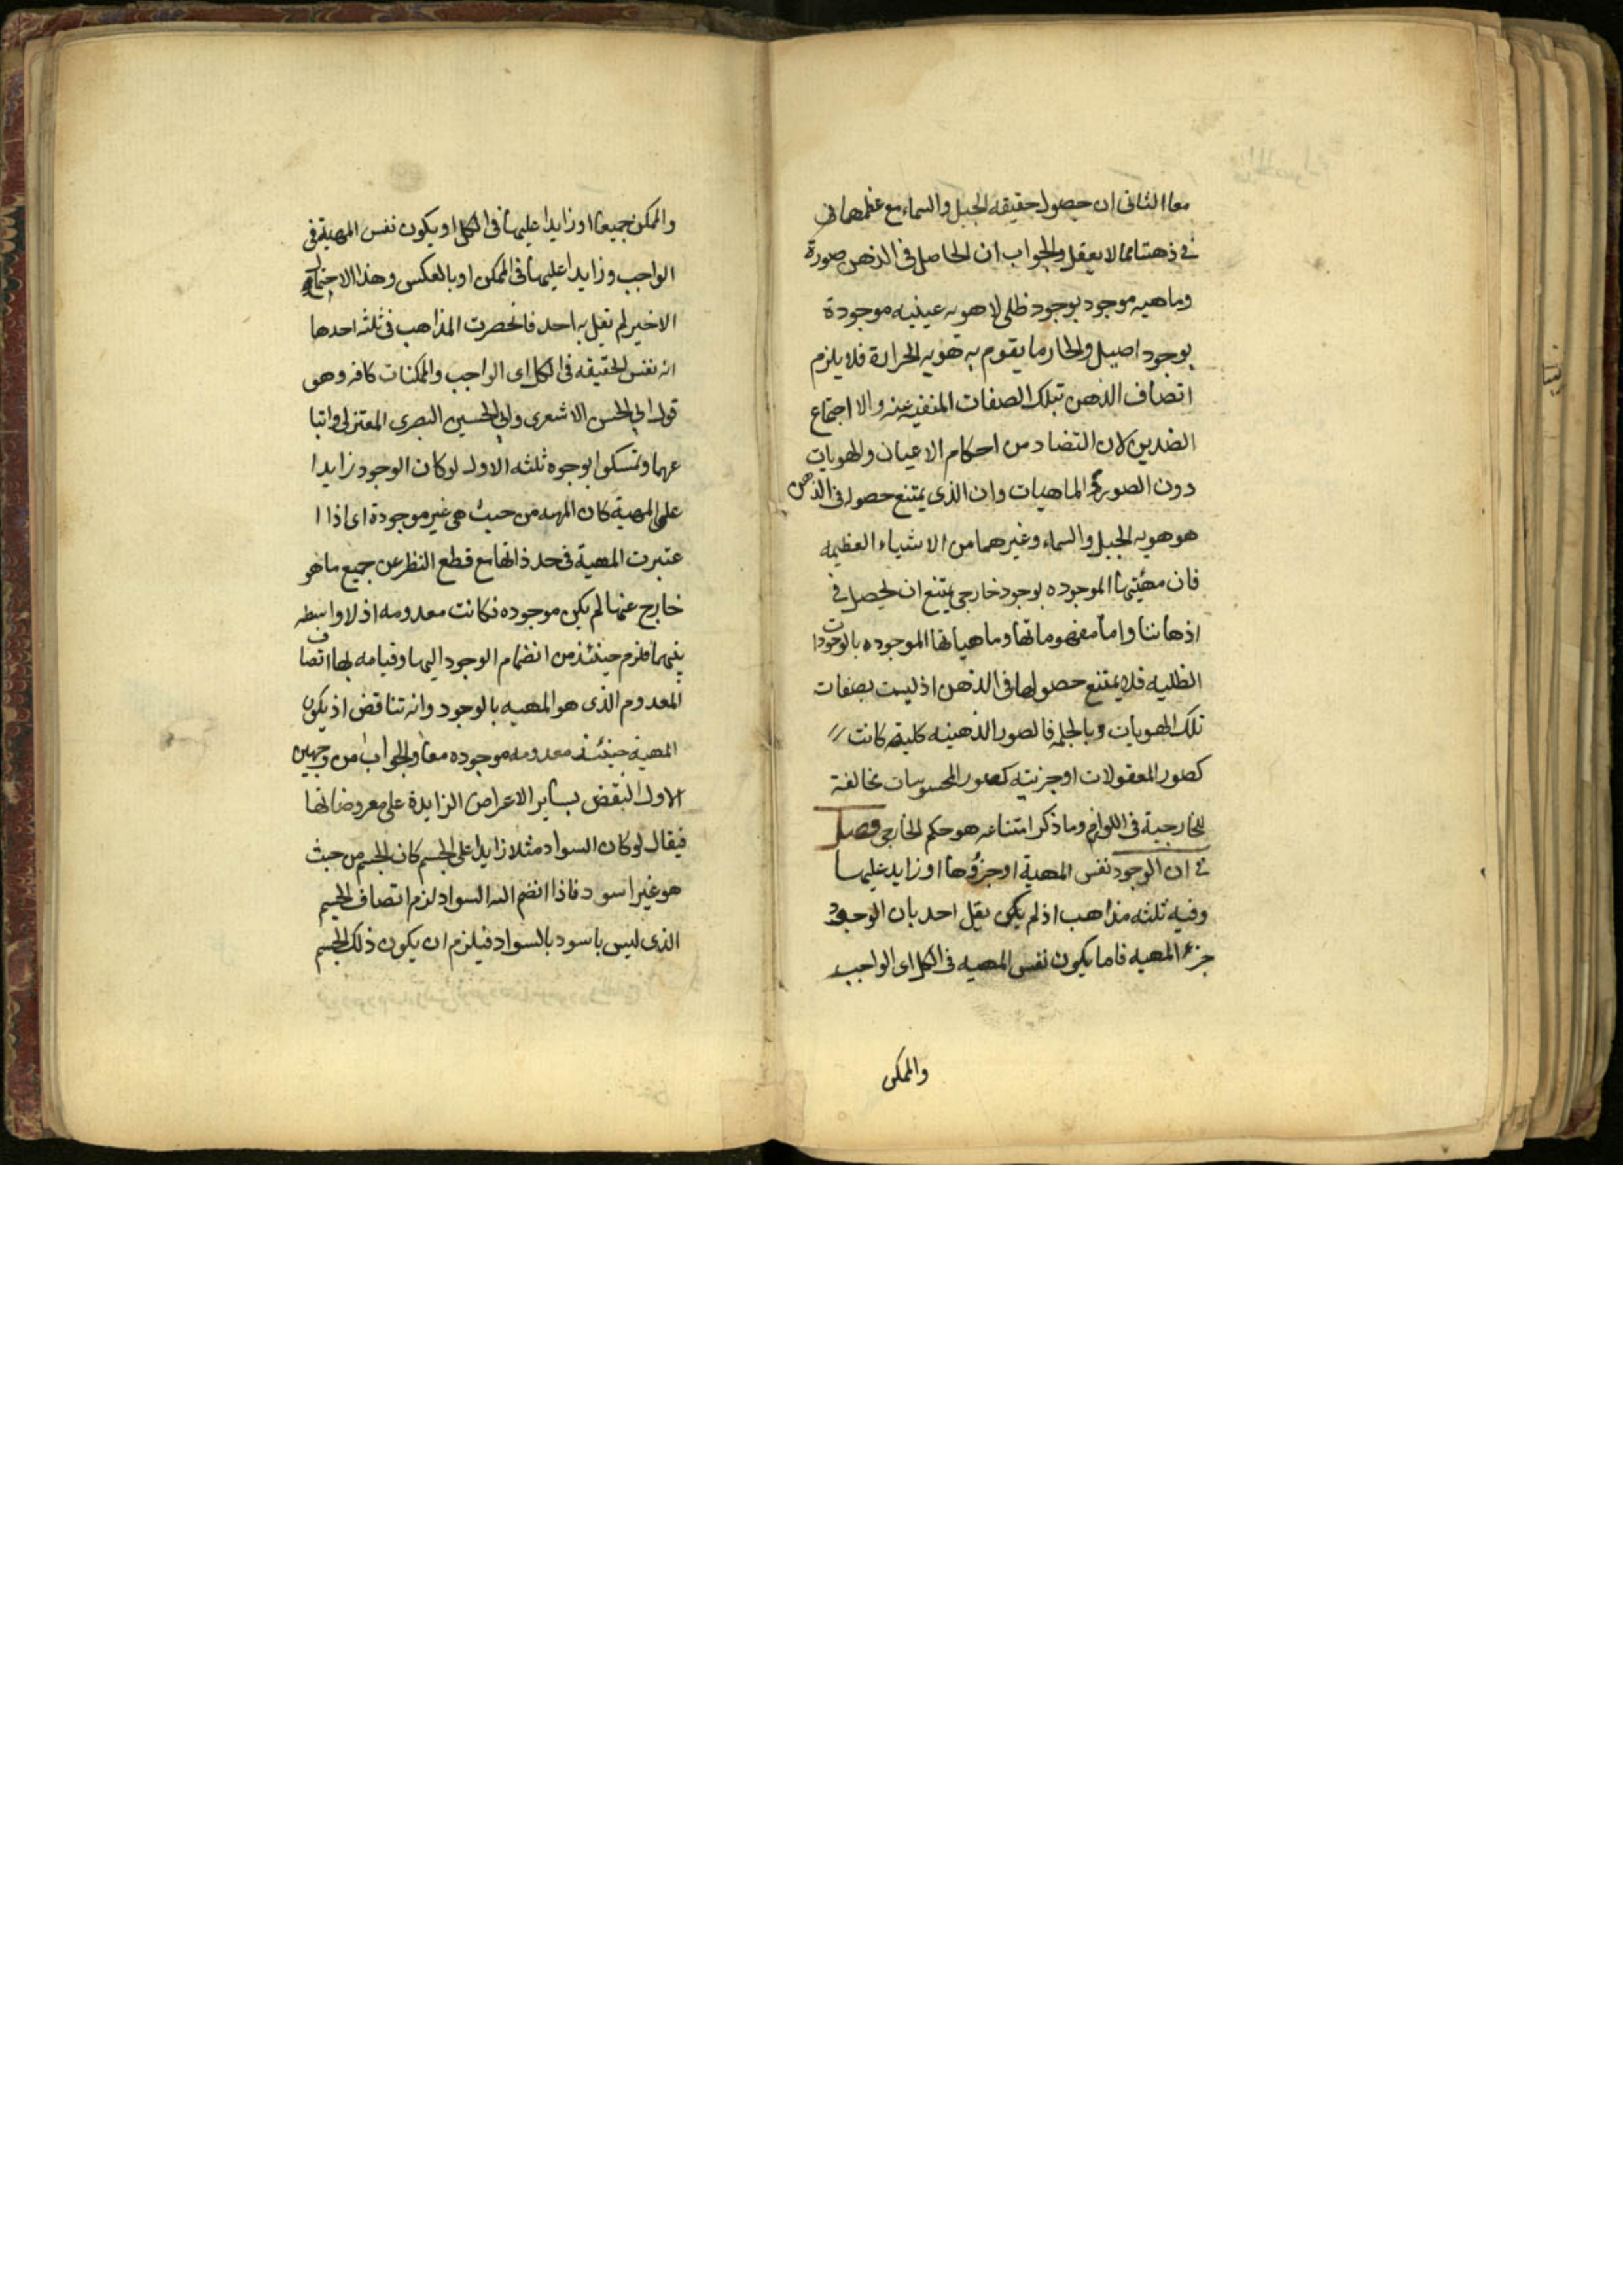 معا الثانى ان حصول حقيقه الجبل والسماء مع عظمهما فى
فى ذهننا مما لا يعقل والجواب ان الحاصل فى الذهن صورة
وماهيه موجود بوجود ظلى لا هويه عينيه موجودة
بوجود اصيل والحار ما يقوم به هويه الحرارة فلا يلزم
اتصاف الذهن بتلك الصفات المنفيه عنه والا اجتماع
الضدين لان التضاد من احكام الاعيان والهويات
دون الصور والماهيات وان الذى يمتنع حصوله فى الذهن
هو هويه الجبل والسماء وغيرهما من الاشياء العظيمه
فان مهيتها الموجوده بوجود خارجى يمتنع ان يحصل فى
اذهاننا واما مفهوماتها وماهياتها الموجوده بالوجودات
الظليه فلا يمتنع حصولها فى الذهن اذ ليست بصفات
تلك الهويات وبالجمله فالصور الذهنيه كليه كانت
كصور المعقولات او جزئيه كصور المحسوسات مخالفة
للخارجية فى اللوازم وما ذكر امتناعه هو حكم الخارجى فصل
فى ان الوجود نفس المهية او جزؤها او زايد عليها
وفيه ثلثه مذاهب اذ لم يكن يقل احد بان الوجود
جزء المهيه فاما يكون نفس المهيه فى الكل اى الواجب
والممكن
والممكن جميعا او زايدا عليها فى الكل او يكون نفس المهية فى
الواجب وزايدا عليها فى الممكن او بالعكس وهذا الاحتمال
الاخير لم يقل به احد فانحصرت المذاهب فى ثلثه احدها
انه نفس الحقيقه فى الكل اى الواجب والممكنات كافه وهو
قول ابى الحسن الاشعرى وابى الحسين البصرى المعتزلى واتبا
عهما وتمسكوا بوجوه ثلثه الاول لو كان الوجود زايدا
على المهية كان المهيه من حيث هى غير موجودة اى اذا ا
عتبرت المهية فى حد ذاتها مع قطع النظر عن جميع ما هو
خارج عنها لم يكن موجوده فكانت معدومه اذ لا واسطه
بينهما فلزم حينئذ من انضمام الوجود اليها وقيامه بها اتصاف
المعدوم الذى هو المهيه بالوجود وانه تناقض اذ يكون
المهية حينئذ معدومه موجوده معا والجواب من وجهين
الاول النقض بساير الاعراض الزايدة على معروضاتها
فيقال لو كان السواد مثلا زايدا على الجسم كان الجسم من حيث
هو غير اسود فاذا انضم اليه السواد لزم اتصاف الجسم
الذى ليس باسود بالسواد فيلزم ان يكون ذلك الجسم